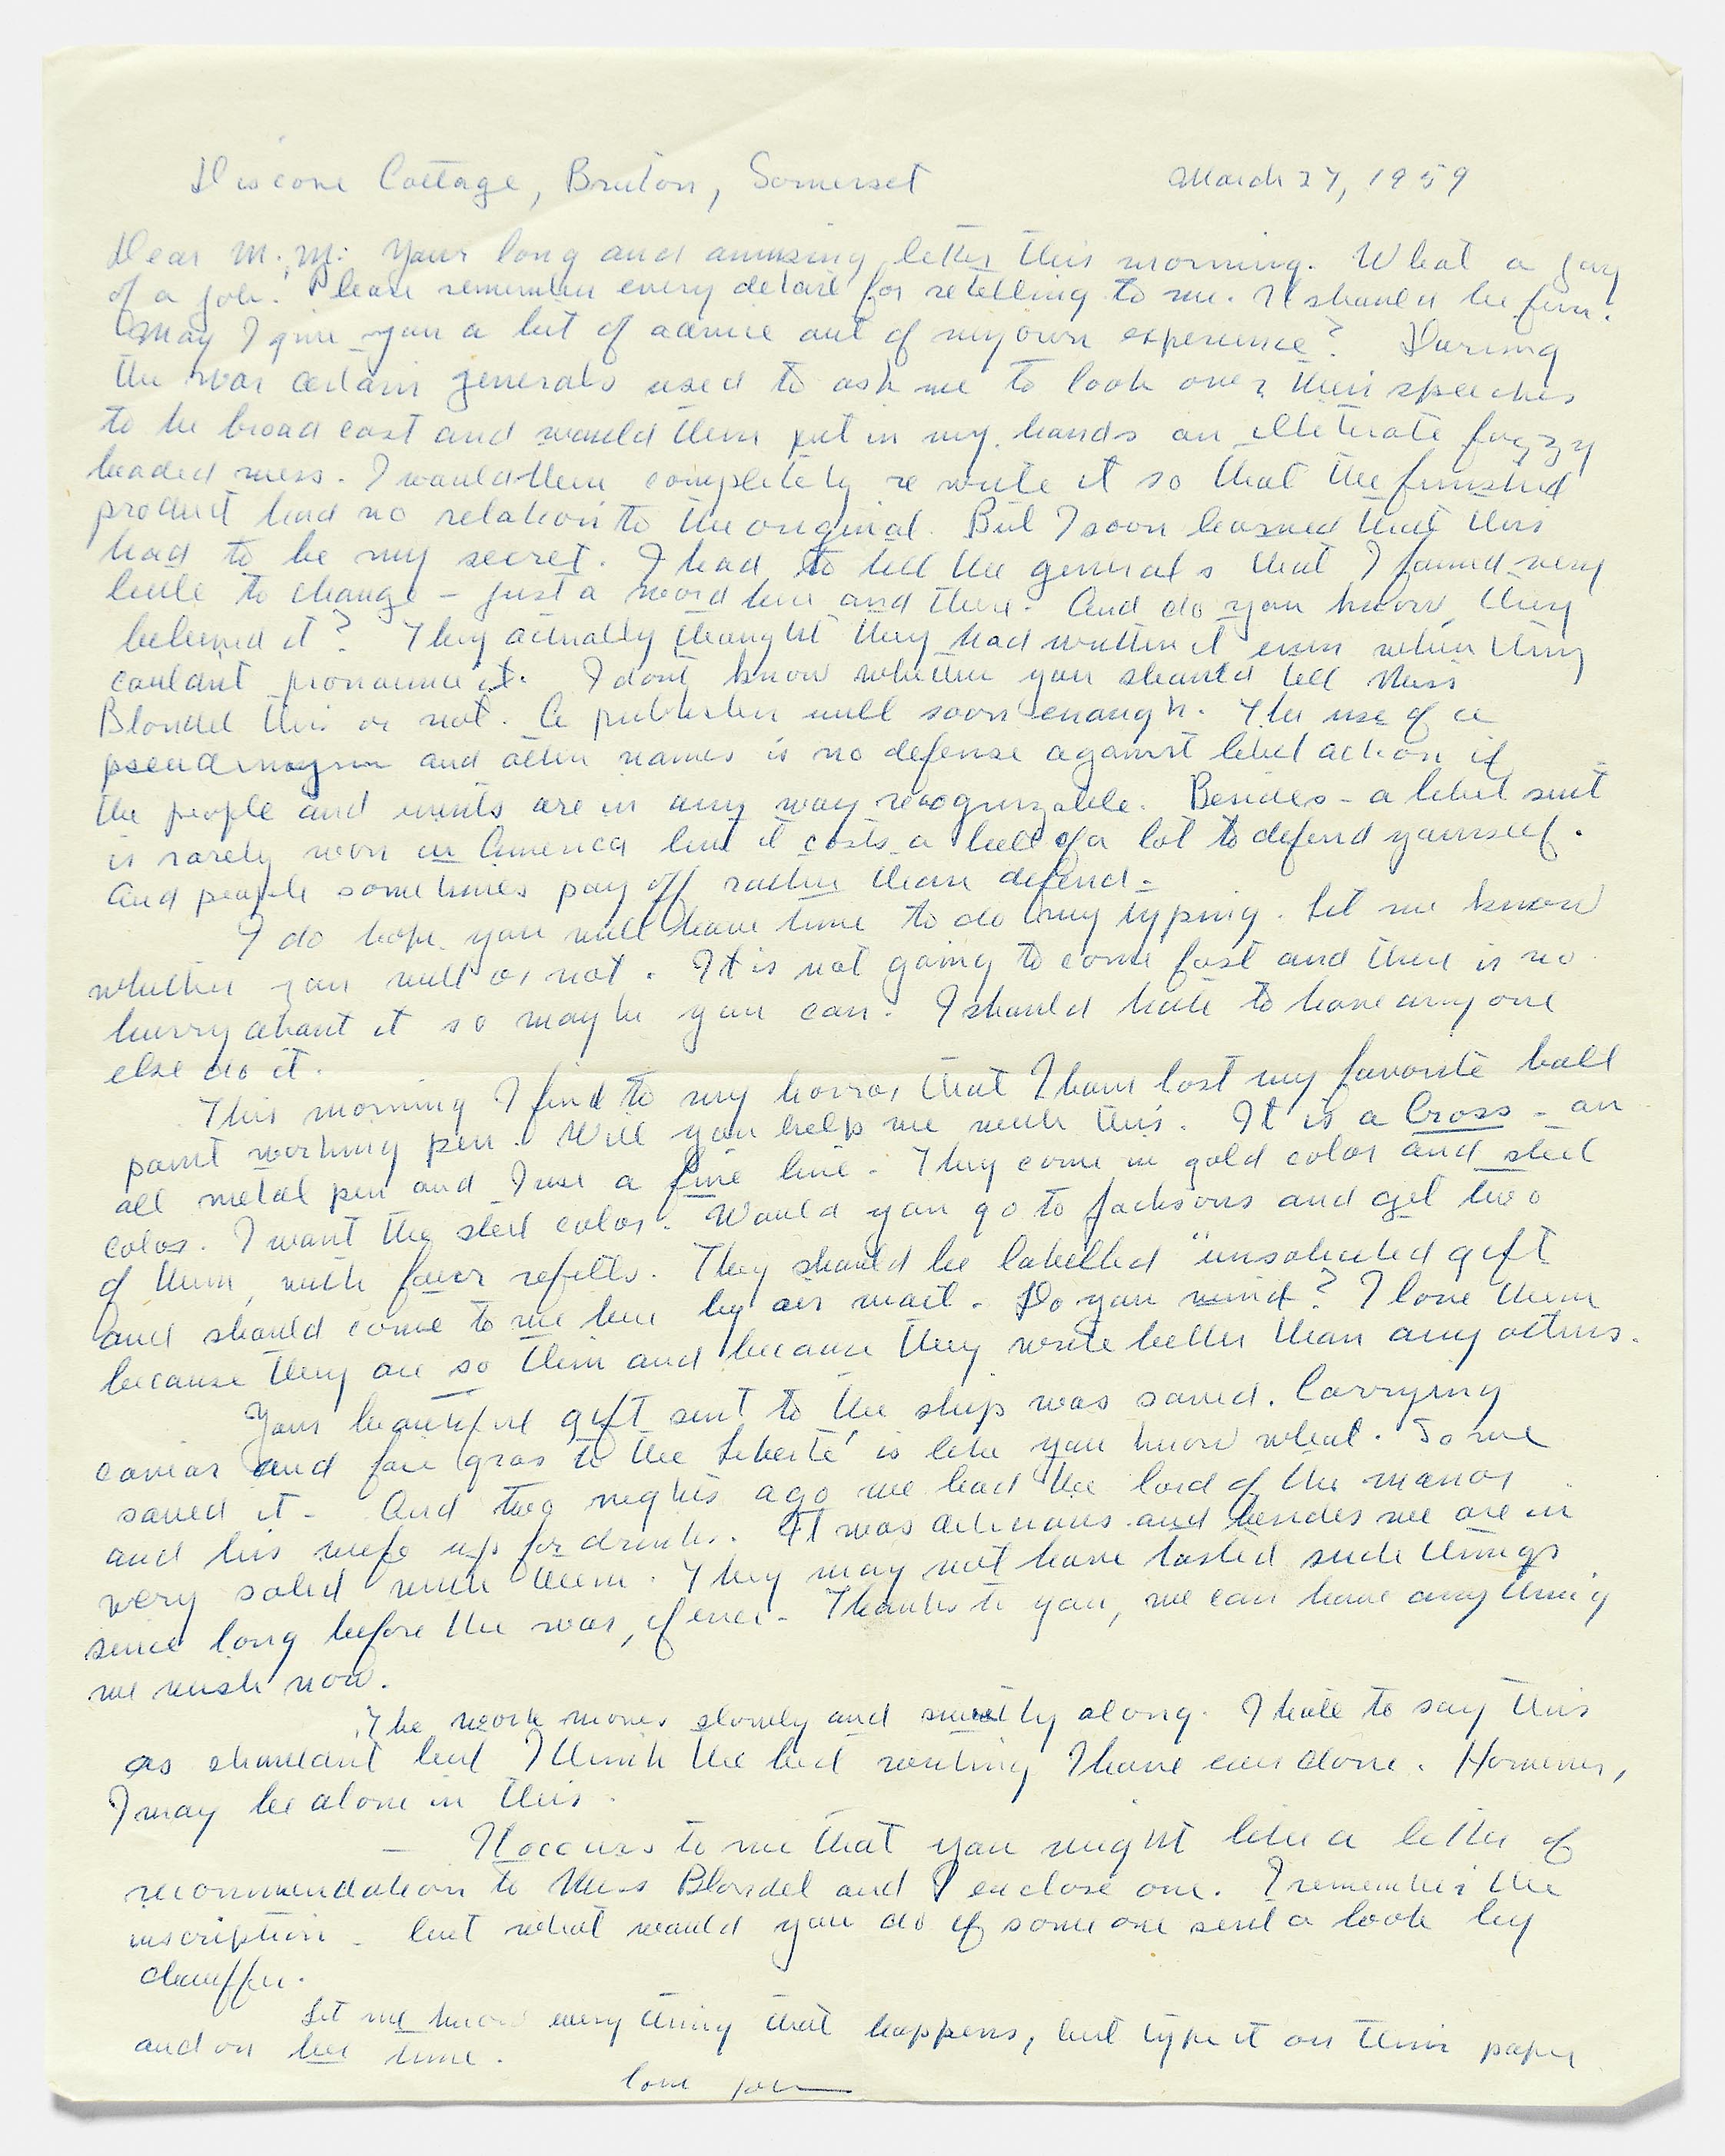 Discove Cottage, Bruton, Somerset March 27, 1959
Dear M.M: Your long and amusing letter this morning. What a joy
of a job. Please remember every detail for retelling to me. It should be fun.
May I give you a bit of advice out of my own experience? During
the war certain generals used to ask me to look over their speeches
to be broad cast and would then put in my hands an illiterate fuzzy
headed mess. I would then completely re write it so that the finished
product had no relation to the original. But I soon learned that this
had to be my secret. I had to tell the generals that I found very
little to change – just a word here and there. And do you know, they
believed it? They actually thought they had written it even when they
couldnt pronounce it. I dont know whether you should tell Miss
Blondel this or not. A publisher will soon enough. The use of a
pseudinoym and other names is no defense against libel action if
the people and events are in any way recognizable. Besides – a libel suit
is rarely won in America but it costs a hell of a lot to defend yourself.
And people sometimes pay off rather than defend.
I do hope you will have time to do my typing. Let me know
whether you will or not. It is not going to come fast and there is no
hurry about it so maybe you can. I should hate to have anyone
else do it.
This morning I find to my horror that I have lost my favorite ball
point working pen. Will you help me with this. It is a Cross – an
all metal pen and I use a fine line. They come in gold color and steel
color. I want the steel color. Would you go to Jacksons and get two
of them, with four refills. They should be labelled "unsolicited gift
and should come to me here by air mail. Do you mind? I love them
because they are so thin and because they write better than any others.
Your beautiful gift sent to the ship was saved. Carrying
caviar and foie gras to the Liberté is like you know what. So we
saved it – And two nights ago we had the lord of the manor
and his wife up for drinks. It was delicious and besides we are in
very solid with them. They may not have tasted such things
since long before the war, if ever – Thanks to you, we can have anything
we wish now.
The work moves slowly and sweetly along. I hate to say this
as shouldnt but I think the best writing I have ever done. However,
I may be alone in this.
– It occurs to me that you might like a letter of
recommendation to Miss Blondel and I enclose one. I remember the
inscription – but what would you do if someone sent a book by
chauffer.
Let me know every thing that happens, but type it on thin paper
and on her time.
love John